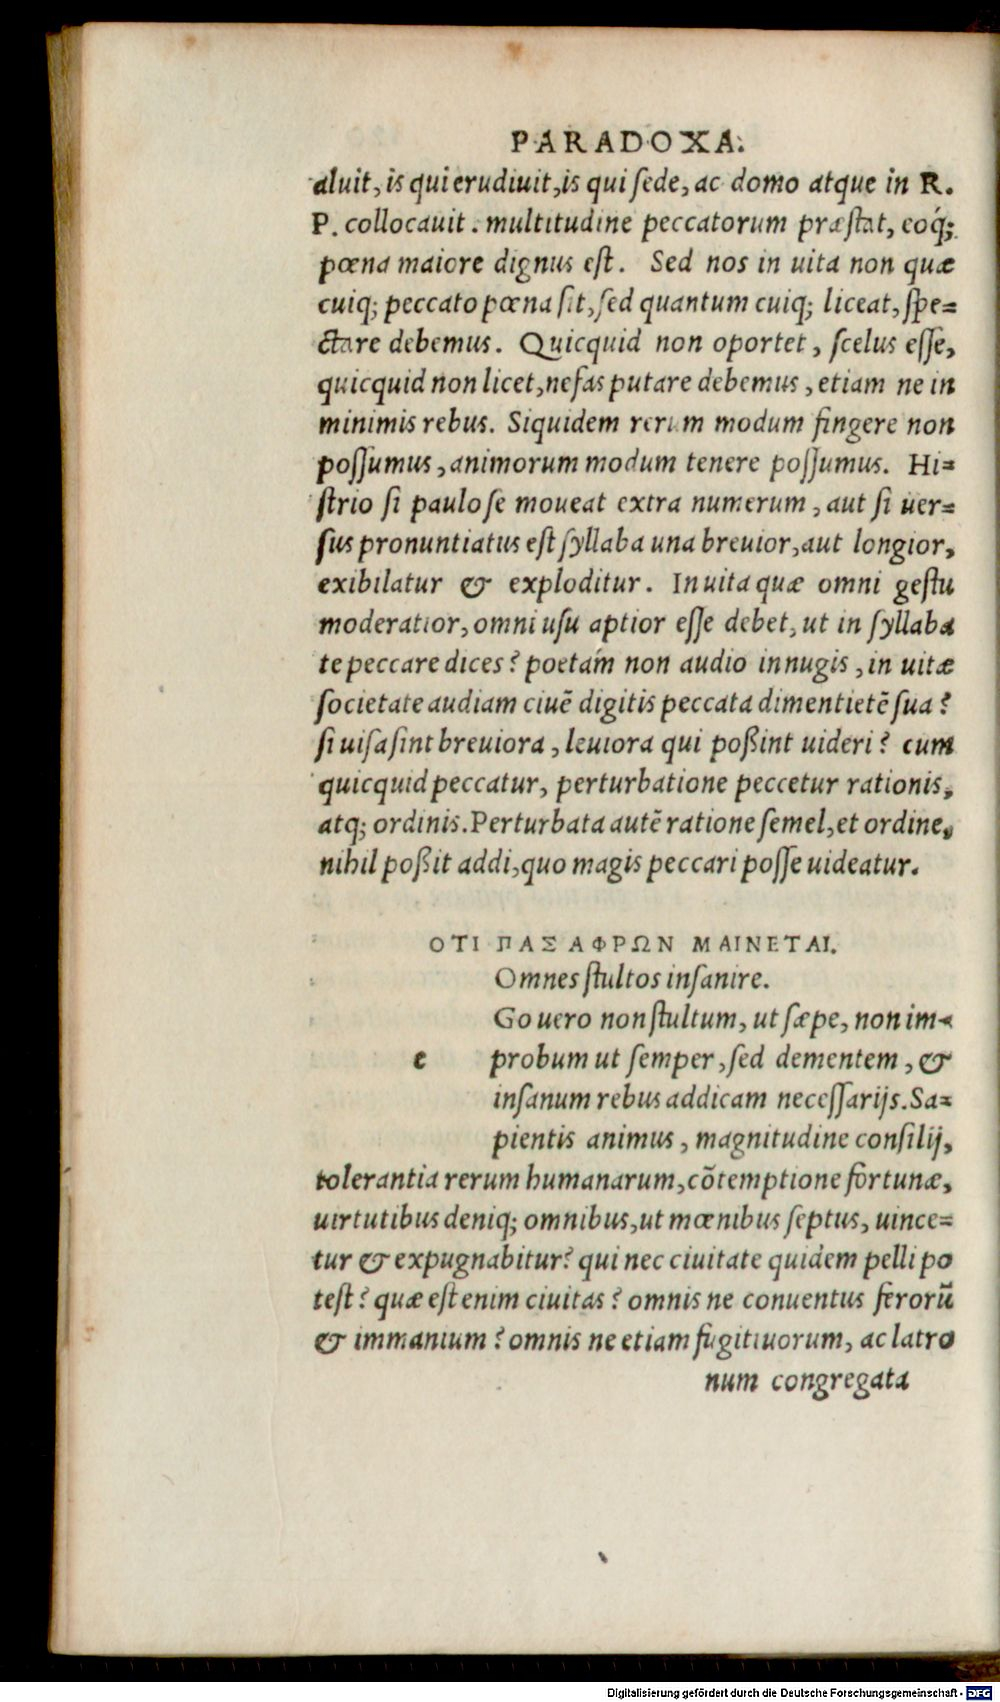 PARADOXA.
aluit, is qui erudiuit, is qui sede, ac domo atque in R.
P. collocauit. multitudine peccatorum præstat, eoq́;
pœna maiore dignus est. Sed nos in uita non quæ
cuiq; peccato pœna sit, sed quantum cuiq; liceat, spe=
ctare debemus. Quicquid non oportet, scelus esse,
quicquid non licet, nefas putare debemus, etiam ne in
minimis rebus. Siquidem rerum modum fingere non
possumus, animorum modum tenere possumus. Hi=
strio si paulo se moueat extra numerum, aut si uer=
sus pronuntiatus est syllaba una breuior, aut longior,
exibilatur & exploditur. In uita quæ omni gestu
moderatior, omni usu aptior esse debet, ut in syllaba
te peccare dices? poetaḿ non audio in nugis, in uitæ
societate audiam ciuẽ digitis peccata dimentietẽ sua?
si uisa sint breuiora, leuiora qui poßint uideri? cum
quicquid peccatur, perturbatione peccetur rationis,
atq; ordinis. Perturbata autẽ ratione semel, et ordine,
nihil poßit addi, quo magis peccari posse uideatur.
ΟΤΙ ΠΑΣ ΑΦΡΩΝ ΜΑΙΝΕΤΑΙ.
Omnes stultos insanire.
Go uero non stultum, ut sæpe, non im=
e probum ut semper, sed dementem, &
insanum rebus addicam necessarijs. Sa=
pientis animus, magnitudine consilij,
tolerantia rerum humanarum, cõtemptione fortunæ,
uirtutibus deniq; omnibus, ut mœnibus septus, uince=
tur & expugnabitur? qui nec ciuitate quidem pelli po
test? quæ est enim ciuitas? omnis ne conuentus ferorũ
& immanium? omnis ne etiam fugitiuorum, ac latro
num congregata
Digitalisierung gefördert durch die Deutsche Forschungsgemeinschaft - DFG